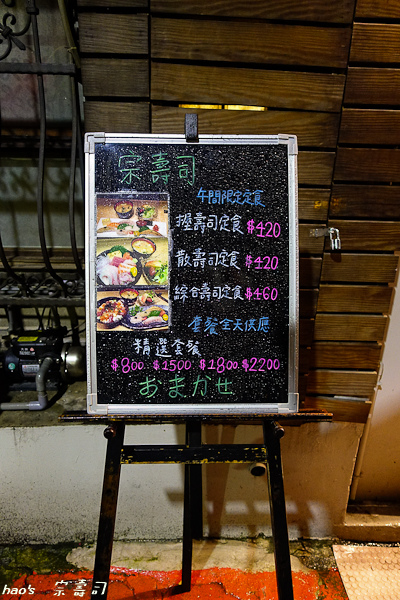 宗壽司
午間限定定食
握壽司定食 $420
散壽司定食 $420
綜合壽司定食 $460
套餐全天供應
精選套餐
$800 $1500 $1800 $2200
おまかせ
hao's 宗壽司